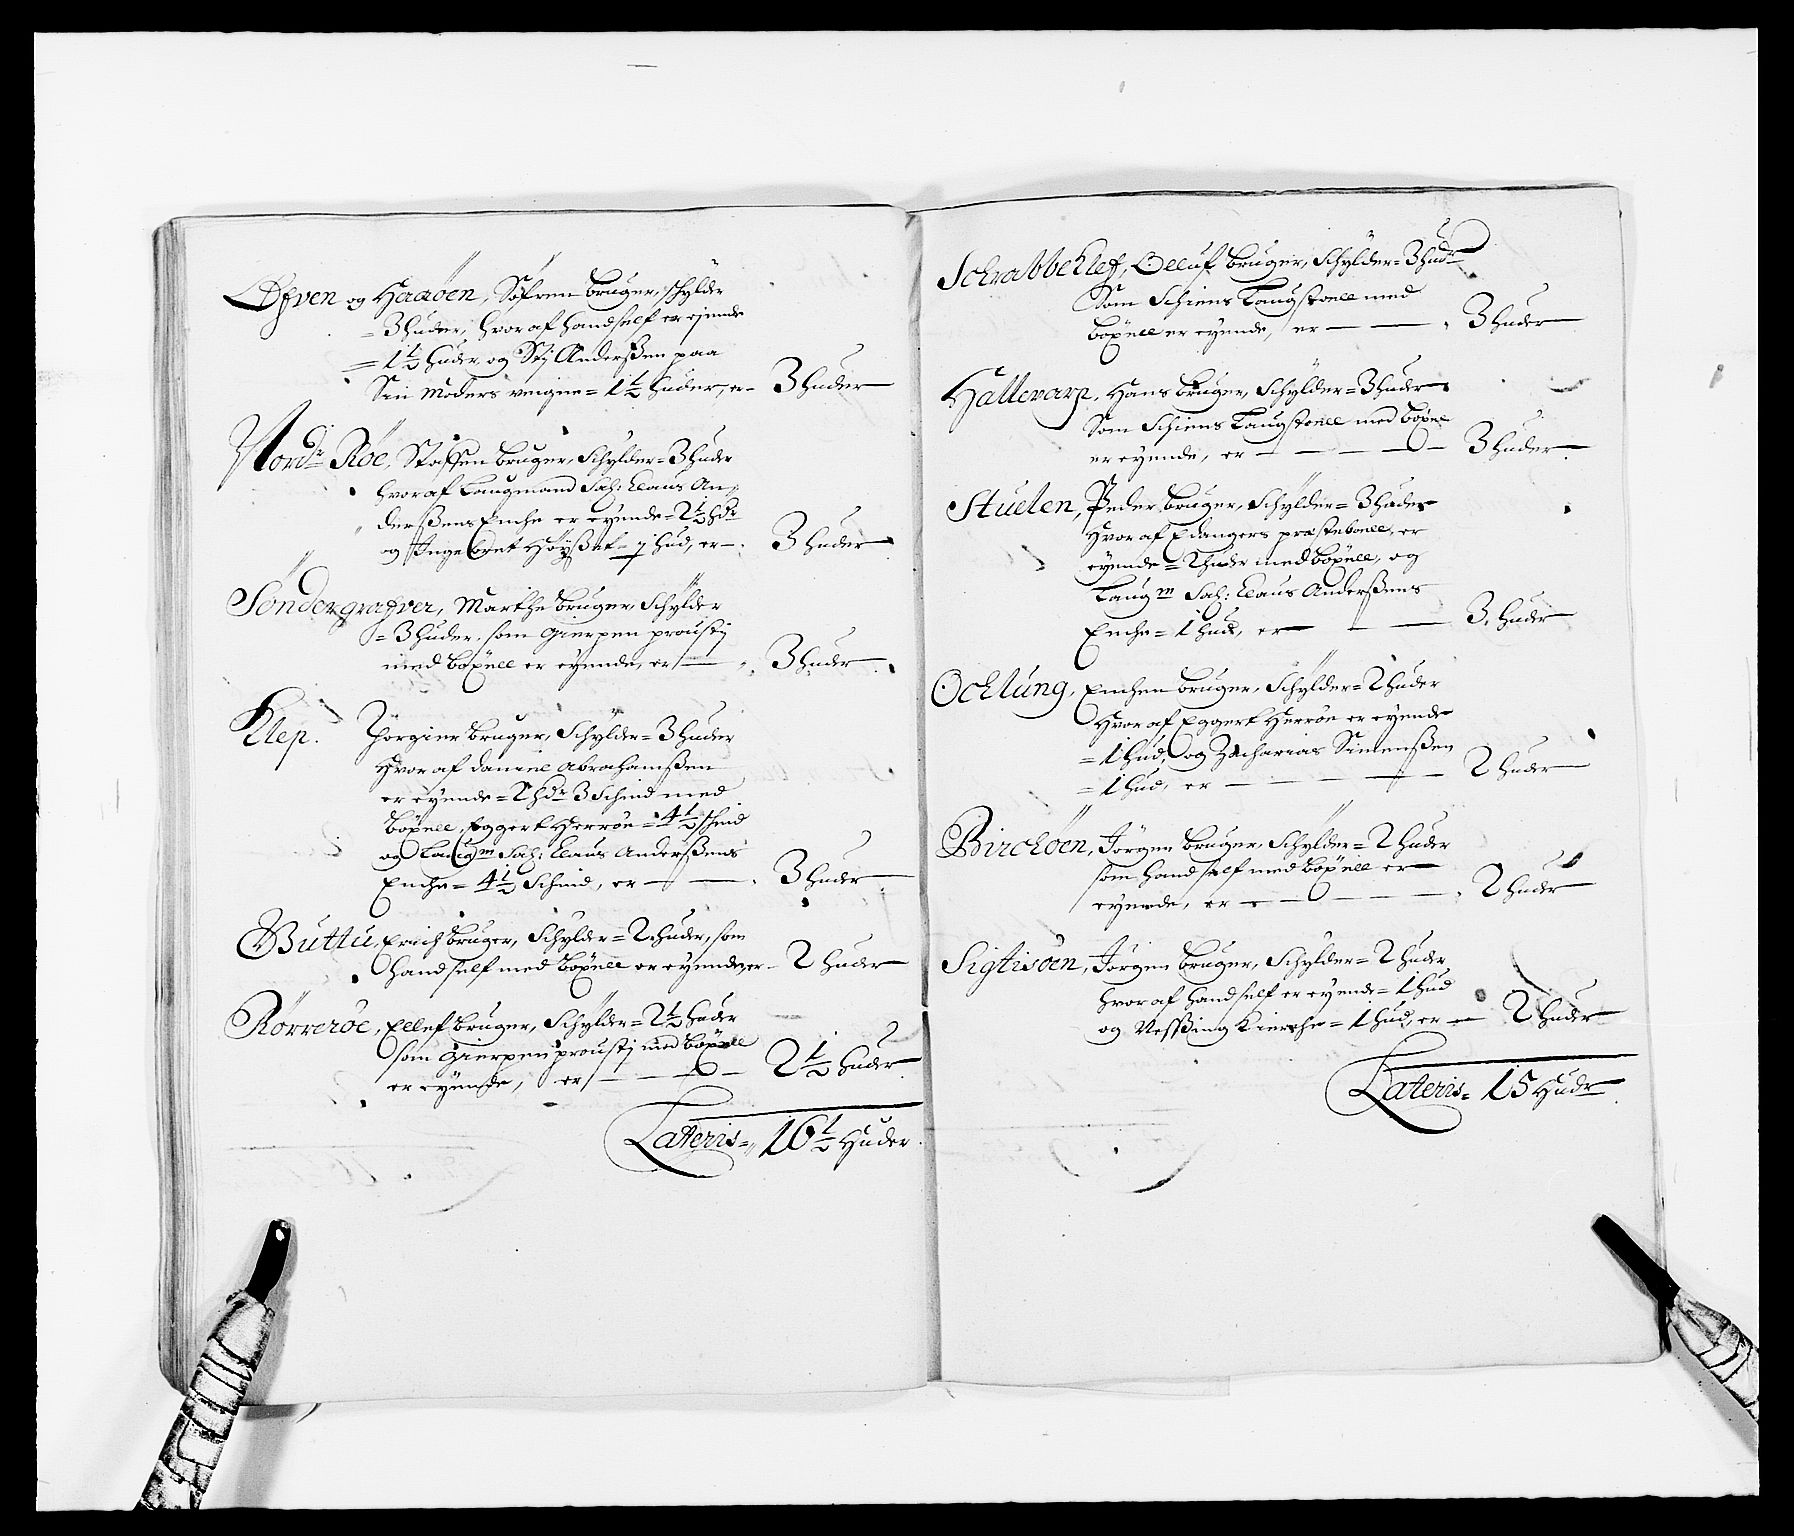 Øfven og Haaøen, Søfren bruger, schylder
= 3 huder, hvoraf hand self er ejende
= 1½ huder og Stj Anderßen paa
Sin Moders veigne = 1½ huder, er – 3 huder
Nordr Röe, Staffen bruger, Schylder = 3 huder
hvoraf Laugmand Sal: Claus An-
derßens Enche er eyende = 2½ hdr
og Ingebret Höyßet = 1 hud, er – 3 huder
Söndergrafver, Marthe bruger, Schylder
= 3 huder, som Gierpen proustj
med böxell er eyende, er — 3 huder
Klep. Thorgier bruger, Schylder = 3 huder
Hvoraf Daniel Abrahamßen
er eyende = 2 hdr 3 Schind med
böxell, Eggert Herröe = 4½ schind
og Laugm Sal: Claus Anderßens
Enche = 4½ Schind, er — 3 huder
Buttu, Erich bruger, Schylder = 2 huder, som
hand self med böxell er eyende, er – 2 huder
Rörreröe, Ellef bruger, Schylder = 2½ huder
som Gierpen proustj med böxell
er eyende, er — 2½ huder
Lateris = 16½ Huder.
Schrabbeklef, Olluf bruger, Schylder = 3 hudr
Som Schiens Laugstoell med
böxell er eyende, er — 3 huder
Hallevarp, Hans bruger, Schylder = 3 huder
Som Schiens Laugstoell med böxel
er eyende, er — 3 huder
Stuelen, Peder bruger, Schylder = 3 huder
Hvoraf Edangers præsteboell, er
eyende = 2 huder med böxell, og
Laugm Sal: Claus Anderßens
Enche = 1 hud, er — 3. huder
Ochlung, Enchen bruger, Schylder = 2 huder
Hvoraf Eggert Herröe er eyende
= 1 hud, og Zacharias Simenßen
= 1 hud, er — 2 huder
Birchöen, Jörgen bruger, Schylder = 2 huder
som hand self med böxell er
eyende, er — 2 huder
Sigtisöen, Jörgen bruger, Schylder = 2 huder
hvoraf hand self er eyende = 1 hud
og Kierche = 1 hud, er — 2 huder
Lateris = 15 Hudr